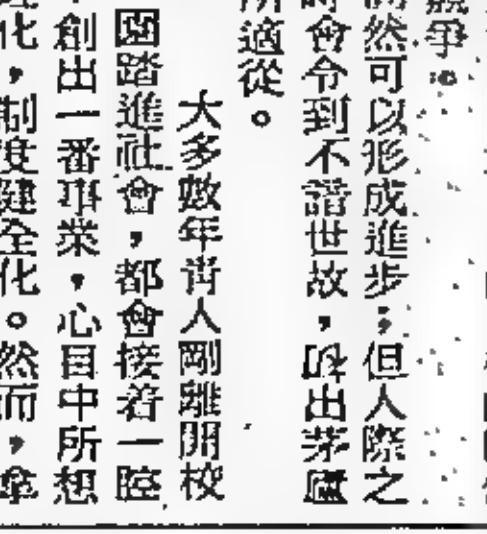 競爭。
固然可以形成進步；但人際之
時會令到不諳世故，時出茅廬
所適從。
大多數年青人剛離開校
園踏進社會，都會接着一腔
創出一番事業，心目中所想
化，制度健全化。然而，拿